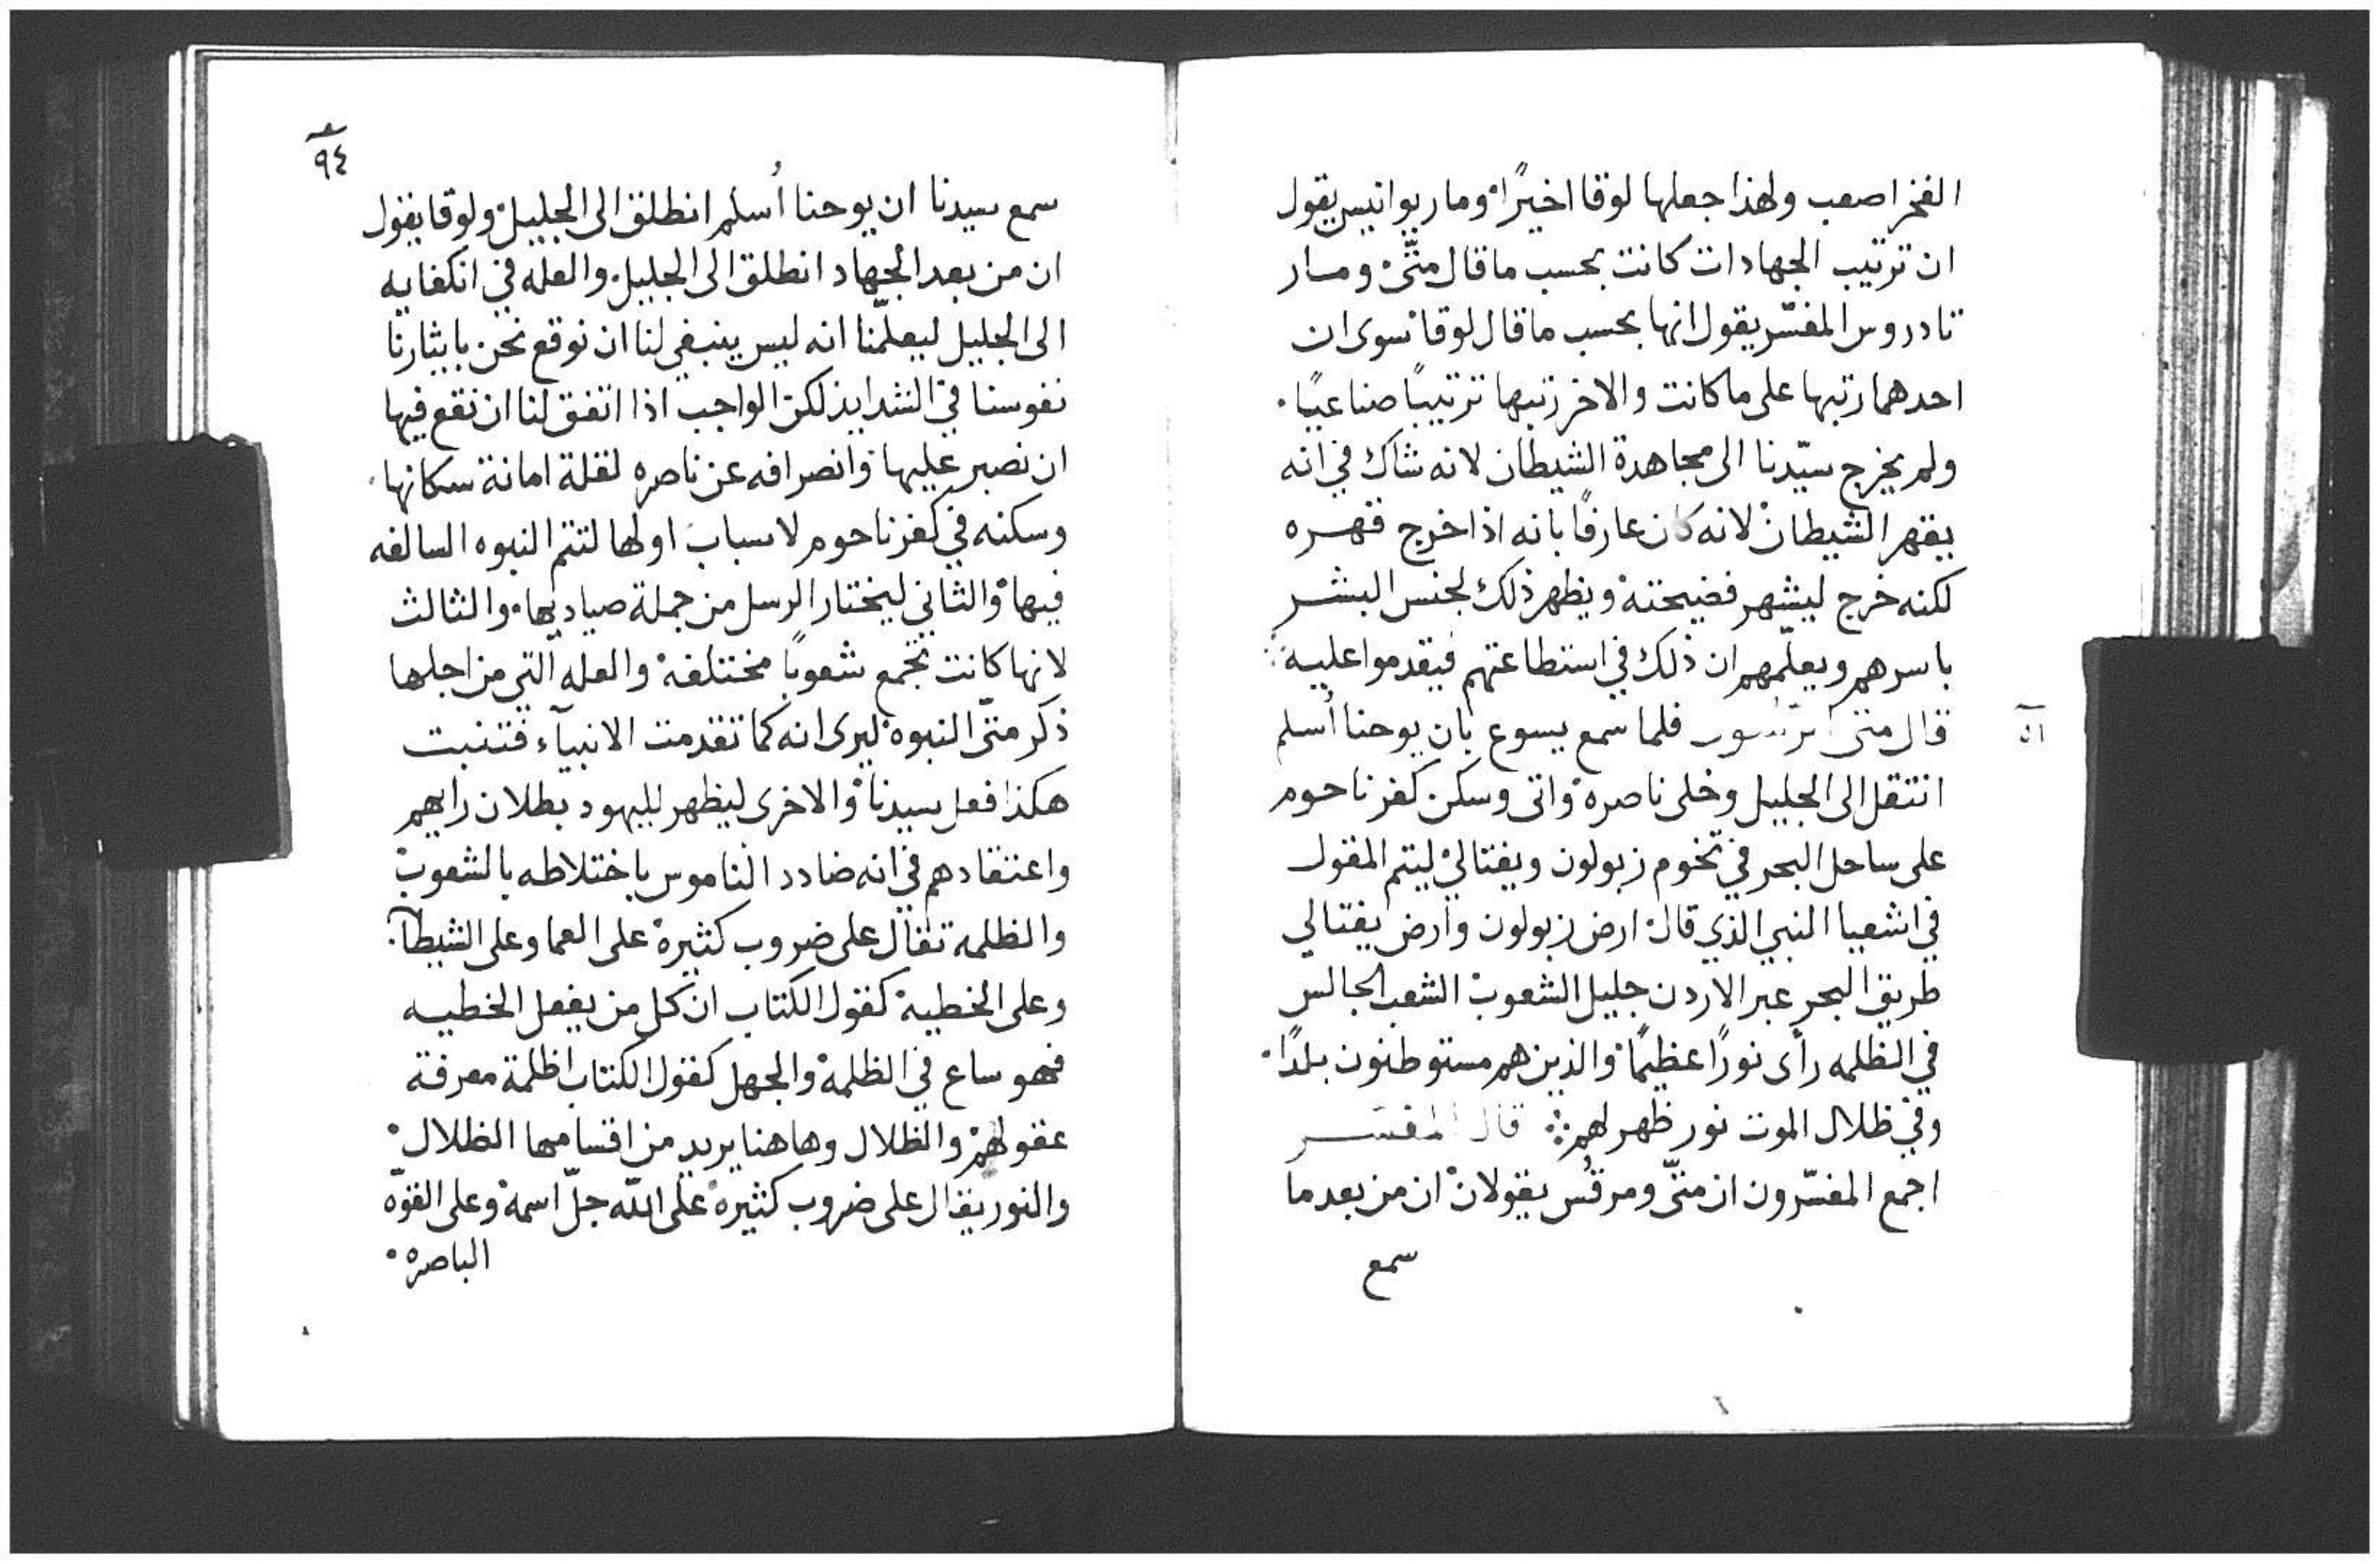 الفخر اصعب ولهذا جعلها لوقا اخيرًا۰ وماريوانيس يقول
ان ترتيب الجهادات كانت بحسب ما قال متّى۰ ومار
تادروس المفسّر يقول انها بحسب ما قال لوقا۰ سوى ان
احدهما رتبها على ما كانت والاخر رتبها ترتيبًا صناعيًا۰
ولم يخرج سيّدنا الى مجاهدة الشيطان لانه شاك في انه
يقهر الشيطان۰ لانه كان عارفًا بانه اذا خرج قهره
لكنه خرج ليشهر فضيحته۰ ويظهر ذلك لجنس البشر
باسرهم ويعلّمهم ان ذلك في استطاعتهم فيقدموا عليه
قال متى فلما سمع يسوع بان يوحنا أسلم
انتقل الى الجليل وخلى ناصره۰ واتى وسكن كفرناحوم
على ساحل البحر في تخوم زبولون ويفتالي۰ ليتم المقول
في اشعيا النبي الذي قال۰ ارض زبولون وارض يفتالي
طريق البحر عبر الاردن جليل الشعوب۰ الشعب الجالس
في الظلمه رأى نورًا عظيمًا۰ والذين هم مستوطنون بلدًا۰
وفي ظلال الموت نور ظهر لهم قال المفسر
اجمع المفسّرون ان متّى ومرقُس يقولان۰ ان من بعد ما
سمع
٥١
٩٤
سمع سيدنا ان يوحنا أُسلم انطلق الى الجليل۰ ولوقا يقول
ان من بعد الجهاد انطلق الى الجليل۰ والعله في انكفايه
الى الجليل ليعلّمنا انه ليس ينبغي لنا ان نوقع نحن بايثارنا
نفوسنا في الشدايد لكن الواجب اذا اتفق لنا ان نقع فيها
ان نصبر عليها۰ وانصرافه عن ناصره لقلة امانة سكانها۰
وسكنه في كفرناحوم لاسباب۰ اولها لتتم النبوه السالفه
فيها۰ والثاني ليختار الرسل من جملة صياديها۰ والثالث
لانها كانت تجمع شعوبًا مختلفه۰ والعله التي من اجلها
ذكر متّى النبوه۰ ليرى انه كما تقدمت الانبيآء فتنبت
هكذا فعل سيدنا۰ والاخرى ليظهر لليهود بطلان رايهم
واعتقادهم في انه ضادد الناموس باختلاطه بالشعوب۰
والظلمه تقال على ضروب كثيره۰ على العما وعلى الشيطآ۰
وعلى الخطيه۰ كقول الكتاب ان كل من يفعل الخطيه
فهو ساع في الظلمه۰ والجهل كقول الكتاب اظلمة معرفة
عقولهم۰ والظلال وهاهنا يريد من اقسامها الظلال۰
والنور يقال على ضروب كثيره۰ على الله جلّ اسمه۰ وعلى القوّه
الباصره۰